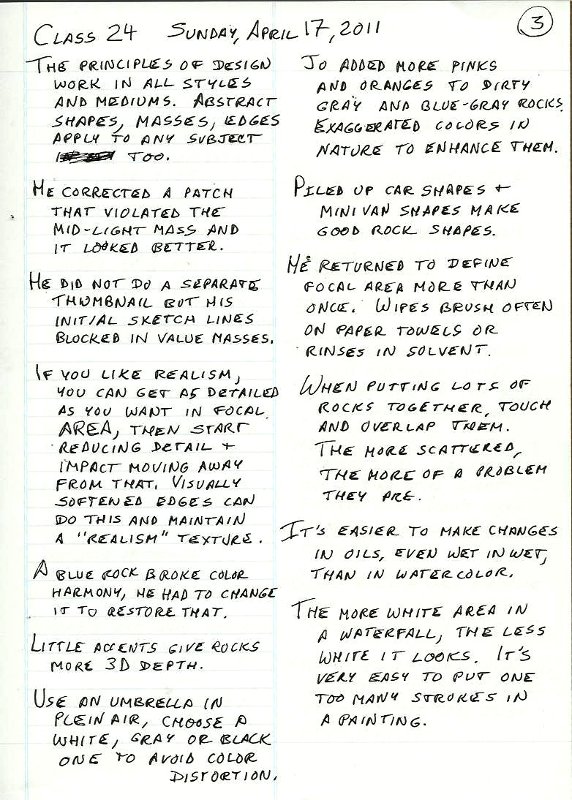 CLASS 24 SUNDAY, APRIL 17, 2011
3
THE PRINCIPLES OF DESIGN
WORK IN ALL STYLES
AND MEDIUMS. ABSTRACT
SHAPES, MASSES, EDGES
APPLY TO ANY SUBJECT
TOO.
HE CORRECTED A PATCH
THAT VIOLATED THE
MID-LIGHT MASS AND
IT LOOKED BETTER.
HE DID NOT DO A SEPARATE
THUMBNAIL BUT HIS
INITIAL SKETCH LINES
BLOCKED IN VALUE MASSES.
IF YOU LIKE REALISM,
YOU CAN GET AS DETAILED
AS YOU WANT IN FOCAL
AREA, THEN START
REDUCING DETAIL +
IMPACT MOVING AWAY
FROM THAT. VISUALLY
SOFTENED EDGES CAN
DO THIS AND MAINTAIN
A "REALISM" TEXTURE.
A BLUE ROCK BROKE COLOR
HARMONY, HE HAD TO CHANGE
IT TO RESTORE THAT.
LITTLE ACCENTS GIVE ROCKS
MORE 3D DEPTH.
USE AN UMBRELLA IN
PLEIN AIR, CHOOSE A
WHITE, GRAY OR BLACK
ONE TO AVOID COLOR
DISTORTION.
JO ADDED MORE PINKS
AND ORANGES TO DIRTY
GRAY AND BLUE-GRAY ROCKS.
EXAGGERATED COLORS IN
NATURE TO ENHANCE THEM.
PILED UP CAR SHAPES +
MINIVAN SHAPES MAKE
GOOD ROCK SHAPES.
HE RETURNED TO DEFINE
FOCAL AREA MORE THAN
ONCE. WIPES BRUSH OFTEN
ON PAPER TOWELS OR
RINSES IN SOLVENT.
WHEN PUTTING LOTS OF
ROCKS TOGETHER, TOUCH
AND OVERLAP THEM.
THE MORE SCATTERED,
THE MORE OF A PROBLEM
THEY ARE.
IT'S EASIER TO MAKE CHANGES
IN OILS, EVEN WET IN WET,
THAN IN WATERCOLOR.
THE MORE WHITE AREA IN
A WATERFALL, THE LESS
WHITE IT LOOKS. IT'S
VERY EASY TO PUT ONE
TOO MANY STROKES IN
A PAINTING.